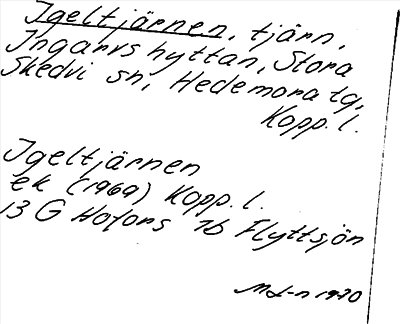 Igeltjärnen, tjärn,
Ingarvshyttan, Stora
Skedvi sn, Hedemora tg,
Kopp. l.
Igeltjärnen
ek (1969) Kopp. l.
13 G Hofors 7b Flyttsjön
1970